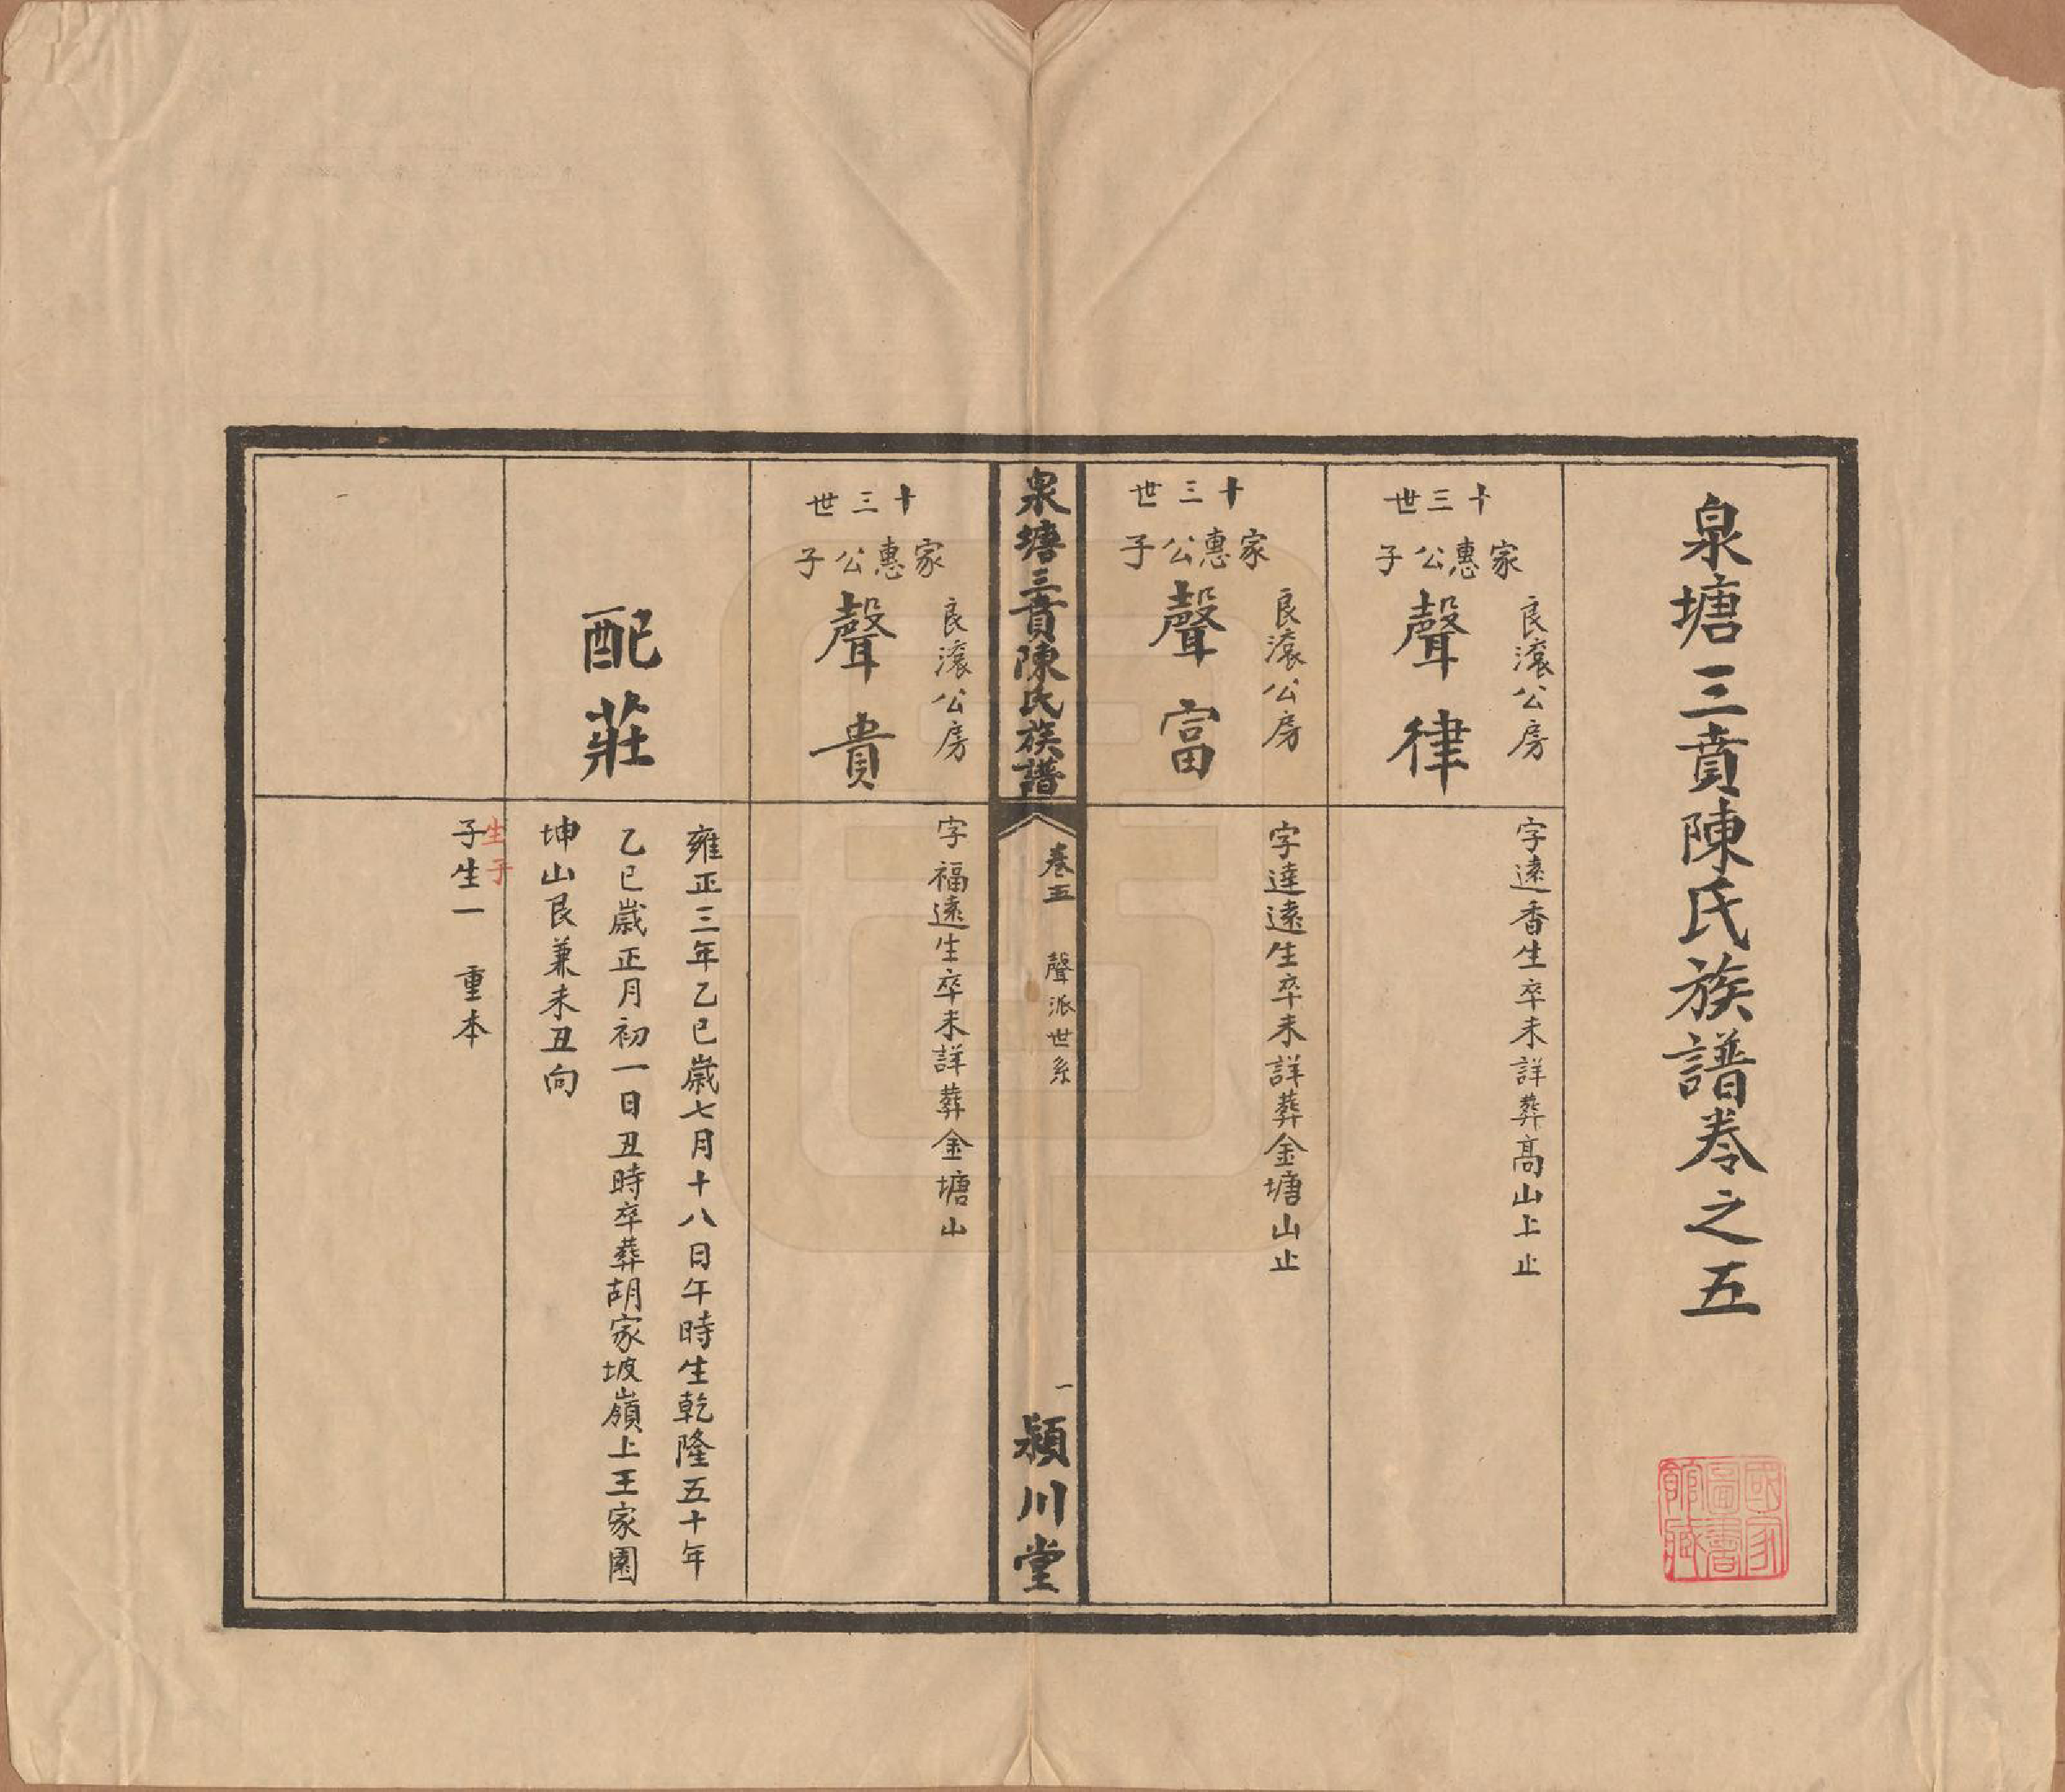 泉塘三賁陳氏族譜卷之五
國家
圖書
館藏
十三世
家惠公子
良滾公房
聲律
字遠香生卒未詳葬高山上止
十三世
家惠公子
良滾公房
聲富
字達遠生卒未詳葬金塘山止
泉塘三賁陳氏族譜
卷五
聲派世系
一
潁川堂
十三世
家惠公子
良滾公房
聲貴
字福遠生卒未詳葬金塘山
配莊
雍正三年乙巳歲七月十八日午時生乾隆五十年
乙巳歲正月初一日丑時卒葬胡家坡嶺上王家園
坤山艮兼未丑向
生子
子生一 重本